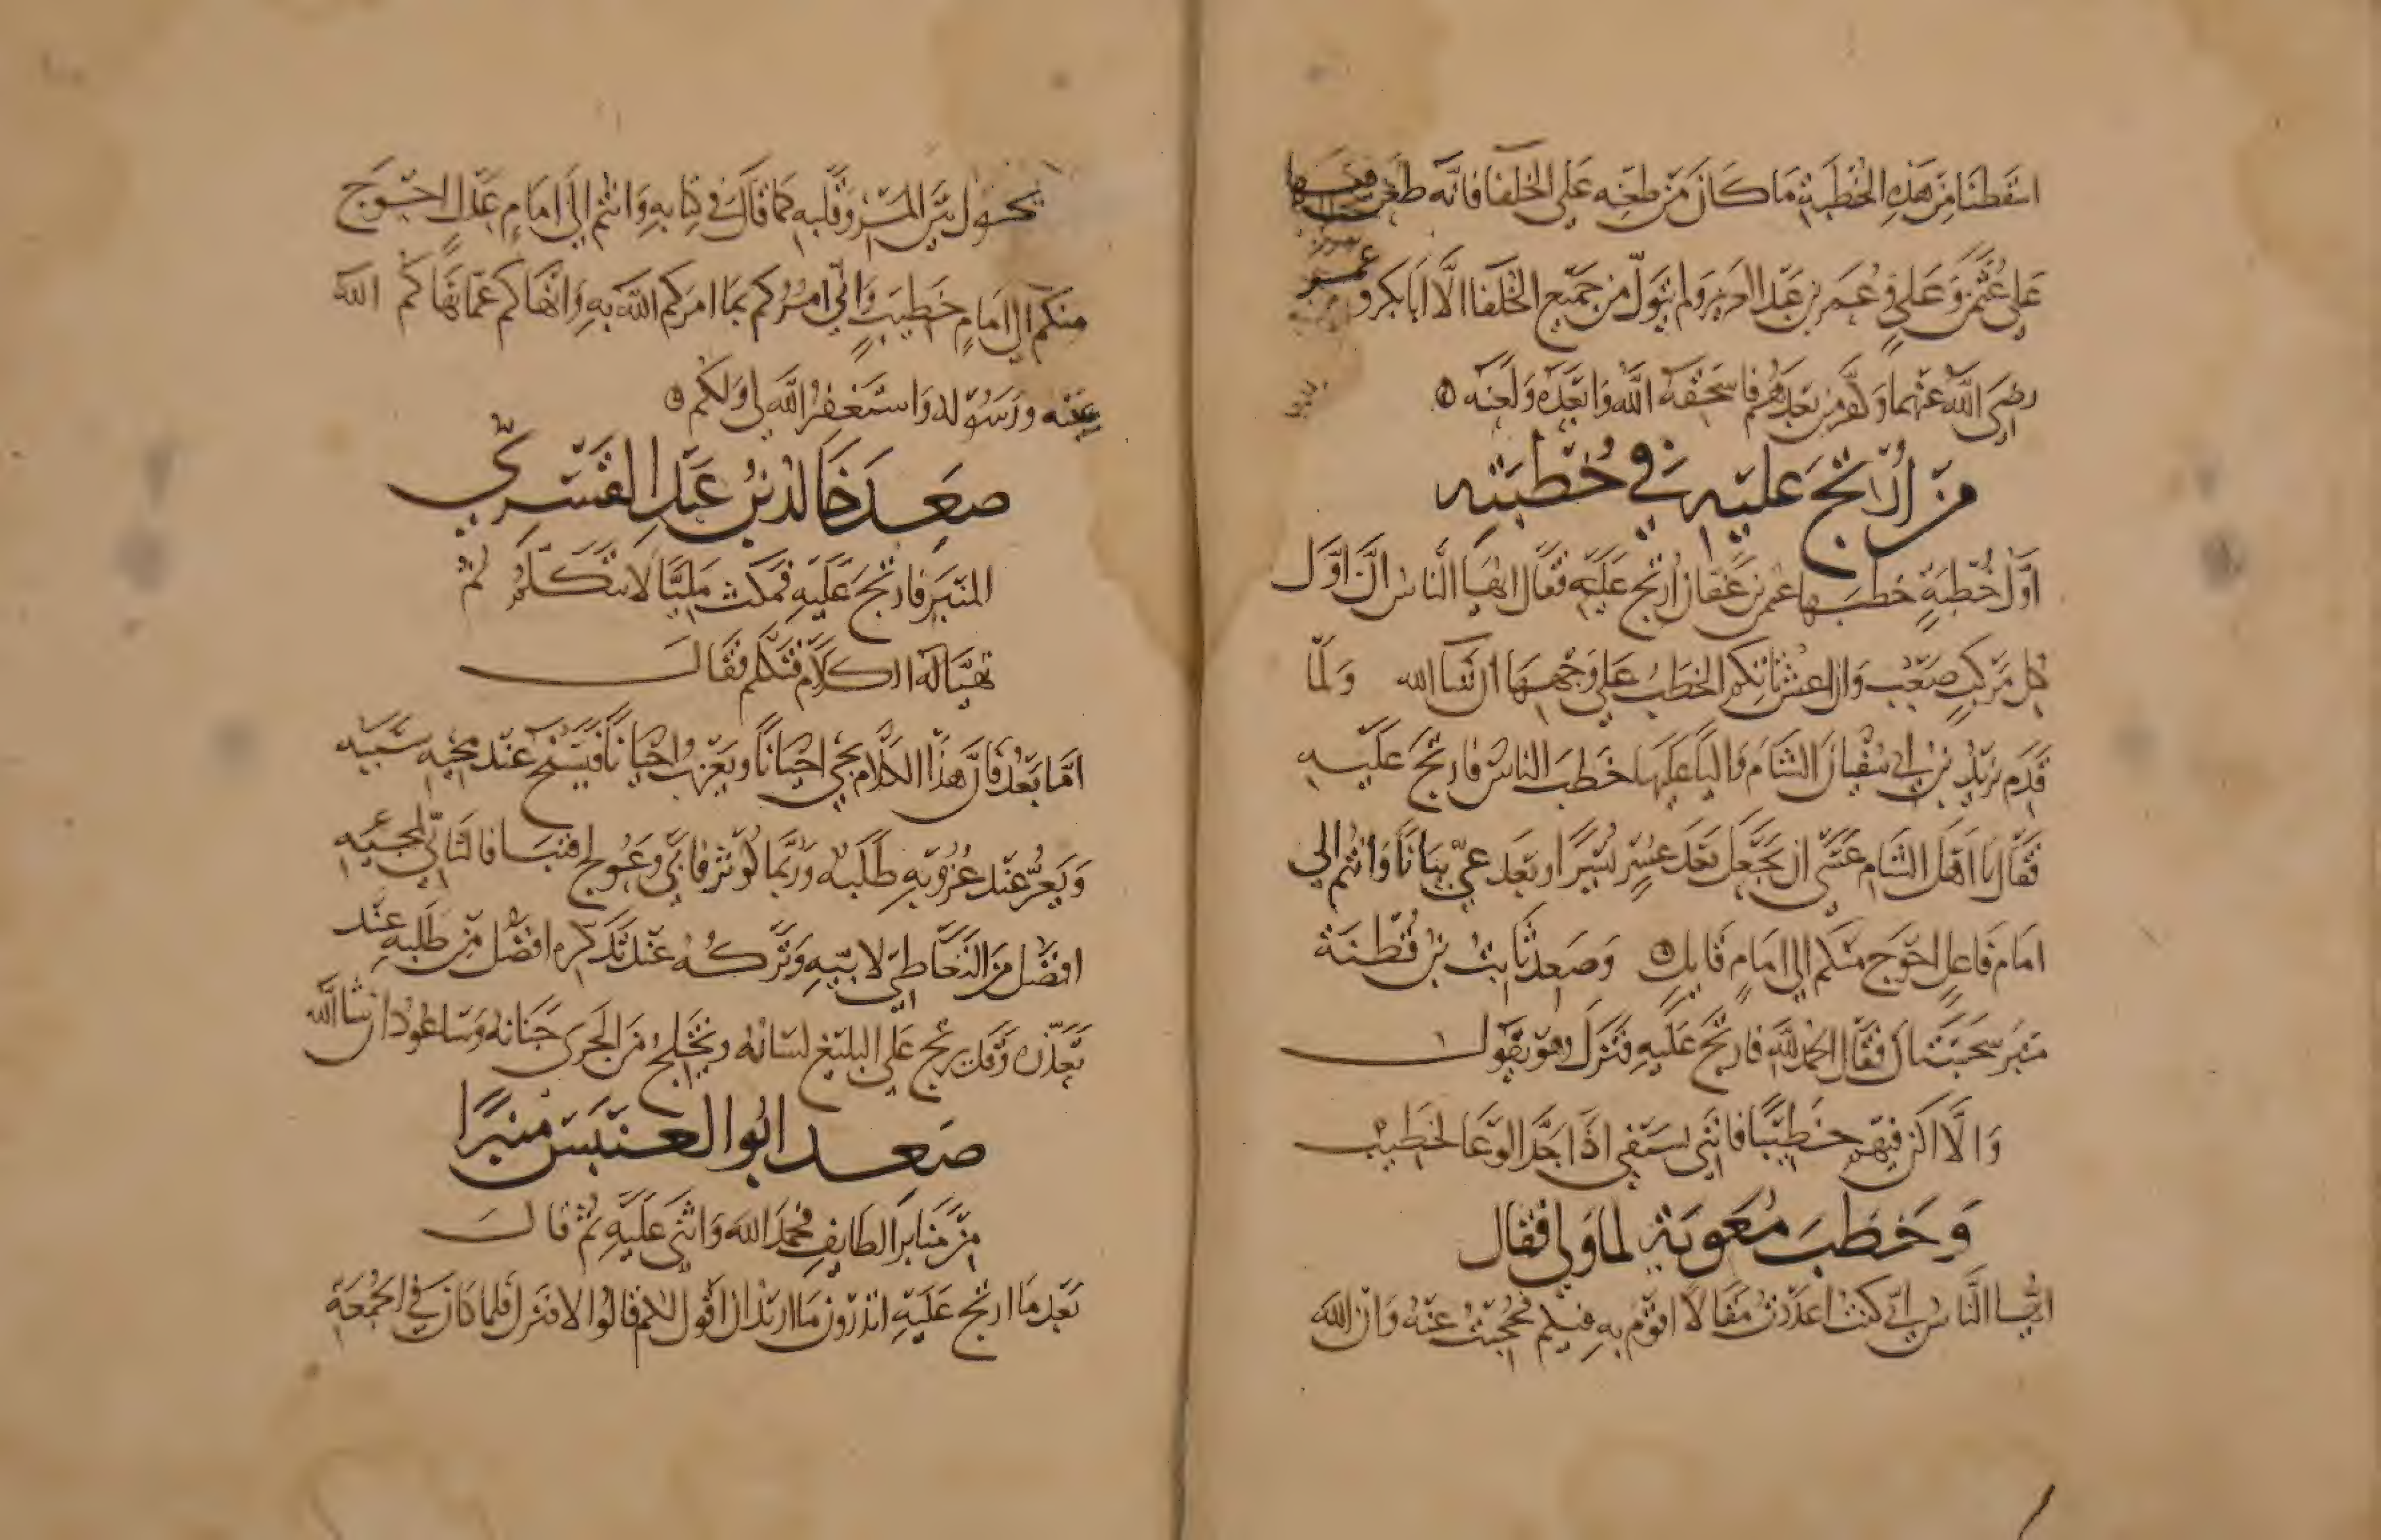 اسقطنا من هذه الخطبة ما كان من طعنه على الخلفا فانه طعن فيها
على عثمن وعلي وعمر بن عبد العزيز ولم يتول من جميع الخلفا الا ابا بكر وعمر
رضى الله عنهما وكفر من بعدهم فاسحقه الله وابعده ولعنه
من ارتج عليه في خطبته
اول خطبة خطبها عثمن بن عفان ارتج عليه فقال ايها الناس ان اول
كل مركب صعب وان اعش تاتكم الخطب على وجهها ان شا الله ولما
قدم يزيد بن ابي سفيان الشام واليا عليها خطب الناس فارتج عليه
فقال يا اهل الشام عسى ان يجعل بعد عسر يسرا وبعد عي بيانا وانتم الى
امام فاعل احوج منكم الى امام قايل وصعد ثابت بن قطنة
منبر سجستان فقال الحمد لله فارتج عليه فنزل وهو يقول
والا اكن فيهم خطيبا فانني بسيفي اذا جد الوغا لخطيب
وخطب معوية لما ولي فقال
ايها الناس اني كنت اعددت مقالا اقوم به فيكم فحجبت عنه وان الله
يحول بين المرء وقلبه كما قال في كتابه وانتم الى امام عدل احوج
منكم الى امام خطيب واني امركم بما امركم الله به وانهاكم عما نهاكم الله
عنه ورسوله واستغفر الله لي ولكم
صعد خالد بن عبد القسري
المنبر فارتج عليه فمكث مليا لا يتكلم ثم
تهيا له الكلام فتكلم فقال
اما بعد فان هذا الكلام يجي احيانا ويعزب احيانا فيسح عند مجيه سيبه
ويعز عند عزوبه طلبه وربما كوثر فابى وعولج فنبا فالتاني لمجيه
افضل من التعاطي لابيه وتركه عند تذكره افضل من طلبه عند
تعذره وقد يرتج على البليغ لسانه ويختلج من الجرى جنانه وساعود ان شا الله
صعد ابو العنبس منبرا
من منابر الطايف فحمد الله واثنى عليه ثم قال
بعد ما ارتج عليه اتدرون ما اريد ان اقول لكم قالوا لا فنزل فلما كان في الجمعة